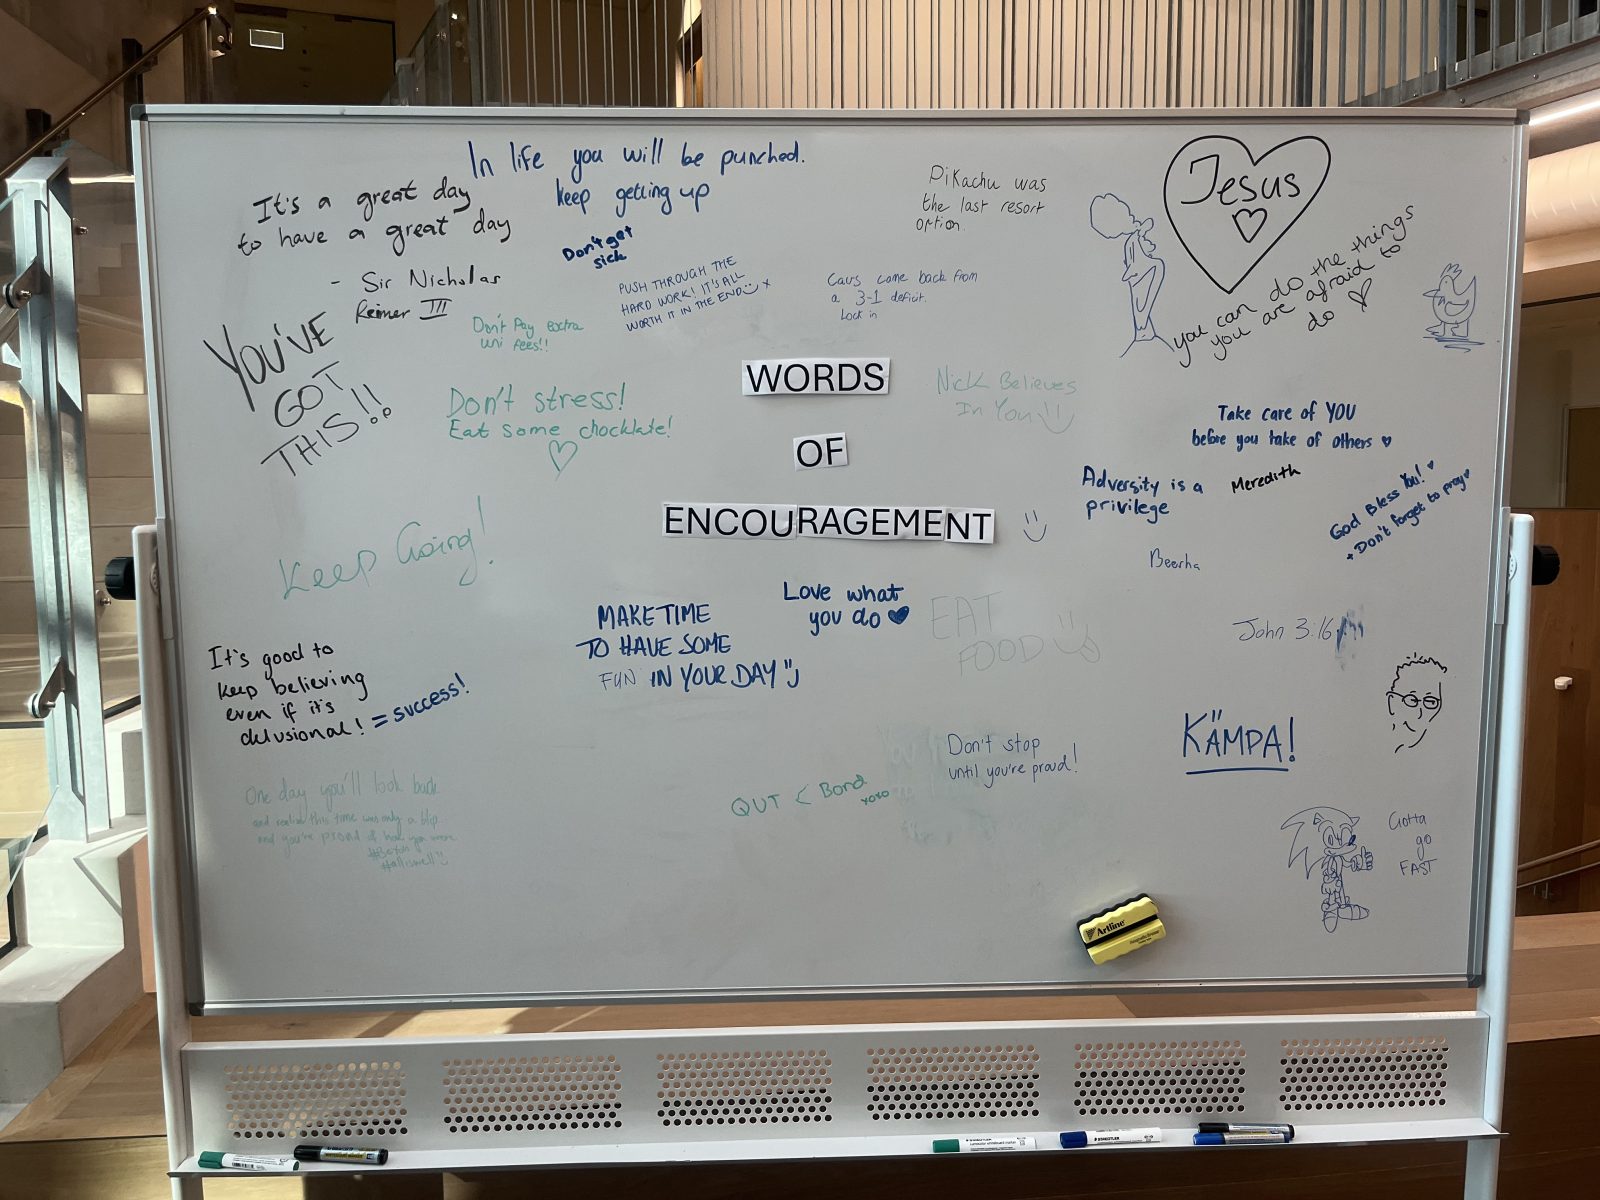 In life you will be punched.
keep getting up
It's a great day
to have a great day
- Sir Nicholas
Reimer III
Don't get
sick
PUSH THROUGH THE
HARD WORK! IT'S ALL
WORTH IT IN THE END x
Pikachu was
the last resort
option.
Cavs came back from
a 3-1 deficit.
Lock in
Jesus
you can do the things
you are afraid to
do
YOU'VE
GOT
THIS!!
Don't Pay extra
uni fees!!
Don't stress!
Eat some chocklate!
WORDS
OF
ENCOURAGEMENT
Nick Believes
In You
Take care of YOU
before you take of others
Adversity is a
privilege
Meredith
God Bless You!
+ Don't forget to pray
Beerha
Keep Going!
MAKE TIME
TO HAVE SOME
FUN IN YOUR DAY
Love what
you do
EAT
FOOD
John 3:16
It's good to
keep believing
even if it's
delusional! = success!
KÄMPA!
Don't stop
until you're proud!
QUT < Bond
xoxo
One day you'll look back
and realise this time was only a blip
and you're proud of how you
#alliswell
Gotta
go
FAST
Artline